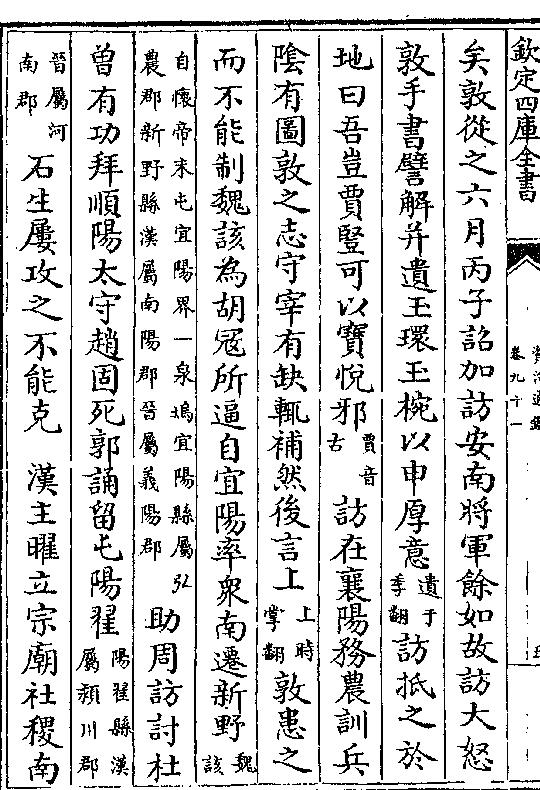 欽定四庫全書
卷九十一
矣敦從之六月丙子詔加訪安南將軍餘如故訪大怒
敦手書譬解并遺玉環玉椀以申厚意遺于季翻訪抵之於
地曰吾豈賈豎可以寶悅邪賈音古訪在襄陽務農訓兵
陰有圖敦之志守宰有缺輒補然後言上上時掌翻敦患之
而不能制魏該為胡冦所逼自宜陽率衆南遷新野魏該
自懷帝末屯宜陽界一泉塢宜陽縣屬弘農郡新野縣漢屬南陽郡晉屬義陽郡助周訪討杜
曾有功拜順陽太守趙固死郭誦留屯陽翟陽翟縣漢屬潁川郡
晉屬河南郡石生屢攻之不能克 漢主曜立宗廟社稷南